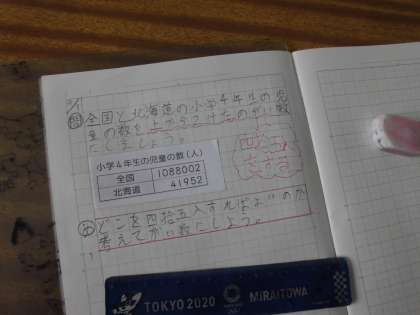 問 全国と北海道の小学4年生の児
童の数を上から2けたのがい数
にしましょう。
四捨五入
小学4年生の児童の数(人)
全国 1088002
北海道 41952
め どこを四捨五入すればよいのか
考えてがい数にしよう。
TOKYO 2020 MIRAITOWA